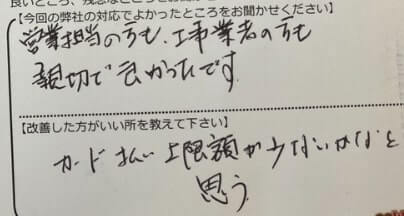 良いところ、残念なところをお聞
【今回の弊社の対応でよかったところをお聞かせください】
営業担当の方も、工事業者の方も
親切で良かったです
【改善した方がいい所を教えて下さい】
カード払い上限額が少ないかなと
思う。